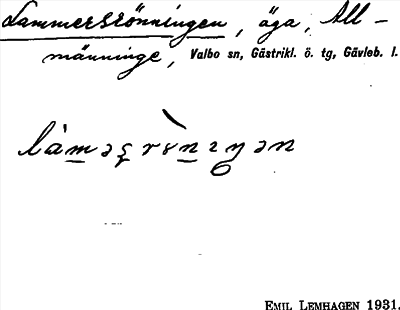 Lammersrönningen, äga, All-
männinge, Valbo sn, Gästrikl. ö. tg, Gävleb. l.
EMIL LEMHAGEN 1931.